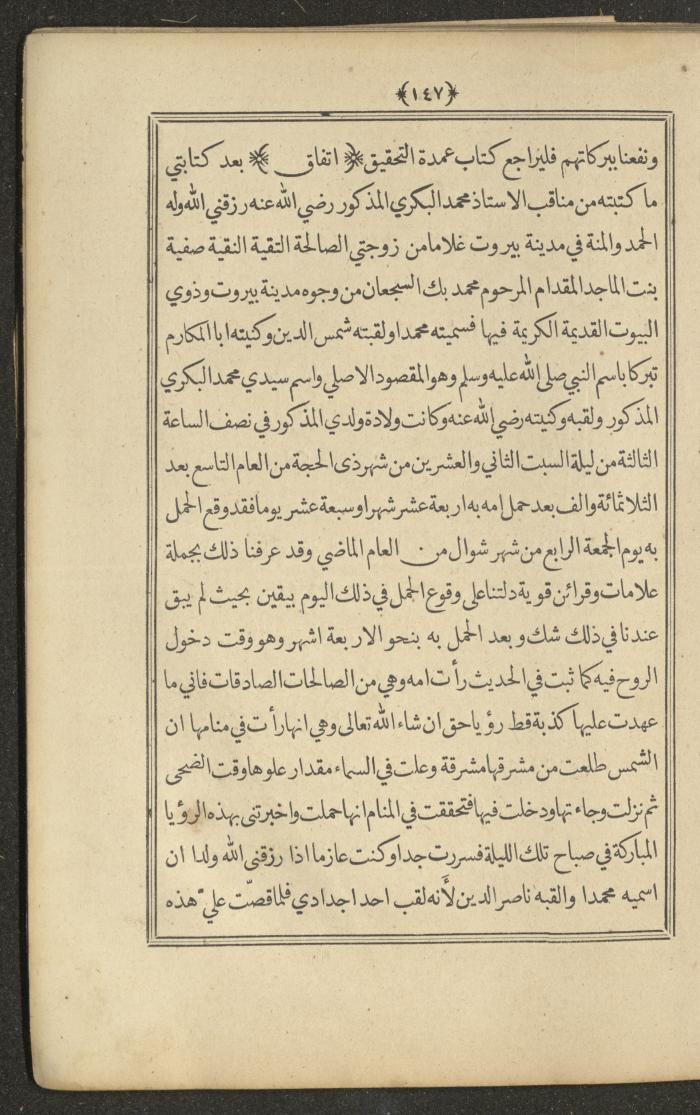 ﴿١٤٧﴾
ونفعنا ببركاتهم فليراجع كتاب عمدة التحقيق ﴿ اتفاق ﴾ بعد كتابتي
ما كتبته من مناقب الاستاذ محمد البكري المذكور رضي الله عنه رزقني الله وله
الحمد والمنة في مدينة بيروت غلاما من زوجتي الصالحة التقية النقية صفية
بنت الماجد المقدام المرحوم محمد بك السجعان من وجوه مدينة بيروت وذوي
البيوت القديمة الكريمة فيها فسميته محمدا ولقبته شمس الدين وكنيته ابا المكارم
تبركا باسم النبي صلى الله عليه وسلم وهو المقصود الاصلي واسم سيدي محمد البكري
المذكور ولقبه وكنيته رضي الله عنه وكانت ولادة ولدي المذكور في نصف الساعة
الثالثة من ليلة السبت الثاني والعشرين من شهر ذى الحجة من العام التاسع بعد
الثلاثمائة والف بعد حمل امه به اربعة عشر شهرا وسبعة عشر يوما فقد وقع الحمل
به يوم الجمعة الرابع من شهر شوال من العام الماضي وقد عرفنا ذلك بجملة
علامات وقرائن قوية دلتنا على وقوع الحمل في ذلك اليوم بيقين بحيث لم يبق
عندنا في ذلك شك وبعد الحمل به بنحو الاربعة اشهر وهو وقت دخول
الروح فيه كما ثبت في الحديث رأت امه وهي من الصالحات الصادقات فاني ما
عهدت عليها كذبة قط رؤيا حق ان شاء الله تعالى وهي انها رأت في منامها ان
الشمس طلعت من مشرقها مشرقة وعلت في السماء مقدار علوها وقت الضحى
ثم نزلت وجاءتها ودخلت فيها فتحققت في المنام انها حملت واخبرتني بهذه الرؤيا
المباركة في صباح تلك الليلة فسررت جدا وكنت عازما اذا رزقني الله ولدا ان
اسميه محمدا والقبه ناصر الدين لأنه لقب احد اجدادي فلما قصّت عليّ هذه